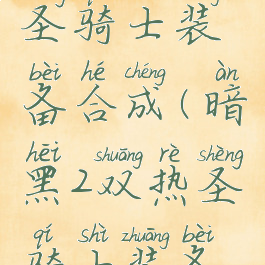 圣骑士装
bèi hé chéng àn
备合成（暗
hēi shuāng rè shèng
黑2双热圣
qí shì zhuāng bèi
骑士装备